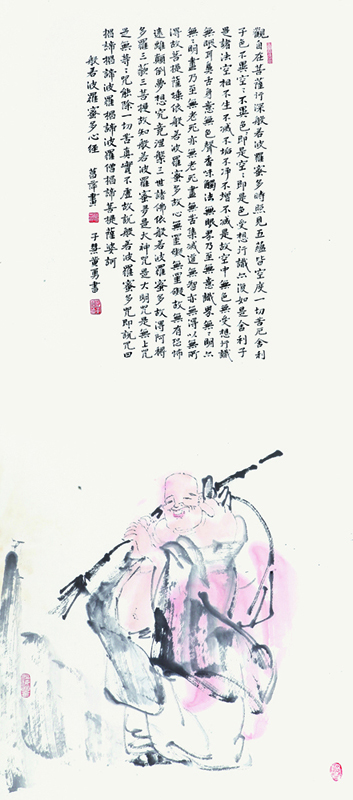 觀自在菩薩行深般若波羅蜜多時照見五蘊皆空度一切苦厄舍利
子色不異空々不異色々即是空々即是色受想行識亦復如是舍利子
是諸法空相不生不滅不垢不淨不增不減是故空中無色無受想行識
無眼耳鼻舌身意無色聲香味觸法無眼界乃至無意識界無々明亦
無明盡乃至無老死亦無老死盡無苦集滅道無智亦無得以無所
得故菩提薩埵依般若波羅蜜多故心無罣礙無罣礙故無有恐怖
遠離顛倒夢想究竟涅槃三世諸佛依般若波羅蜜多故得阿耨
多羅三藐三菩提故知般若波羅蜜多是大神咒是大明咒是無上咒
是無等々咒能除一切苦真實不虛故說般若波羅蜜多咒即說咒曰
揭諦揭諦波羅揭諦波羅僧揭諦菩提薩婆訶
般若波羅蜜多心經 萍畫 黄勇書